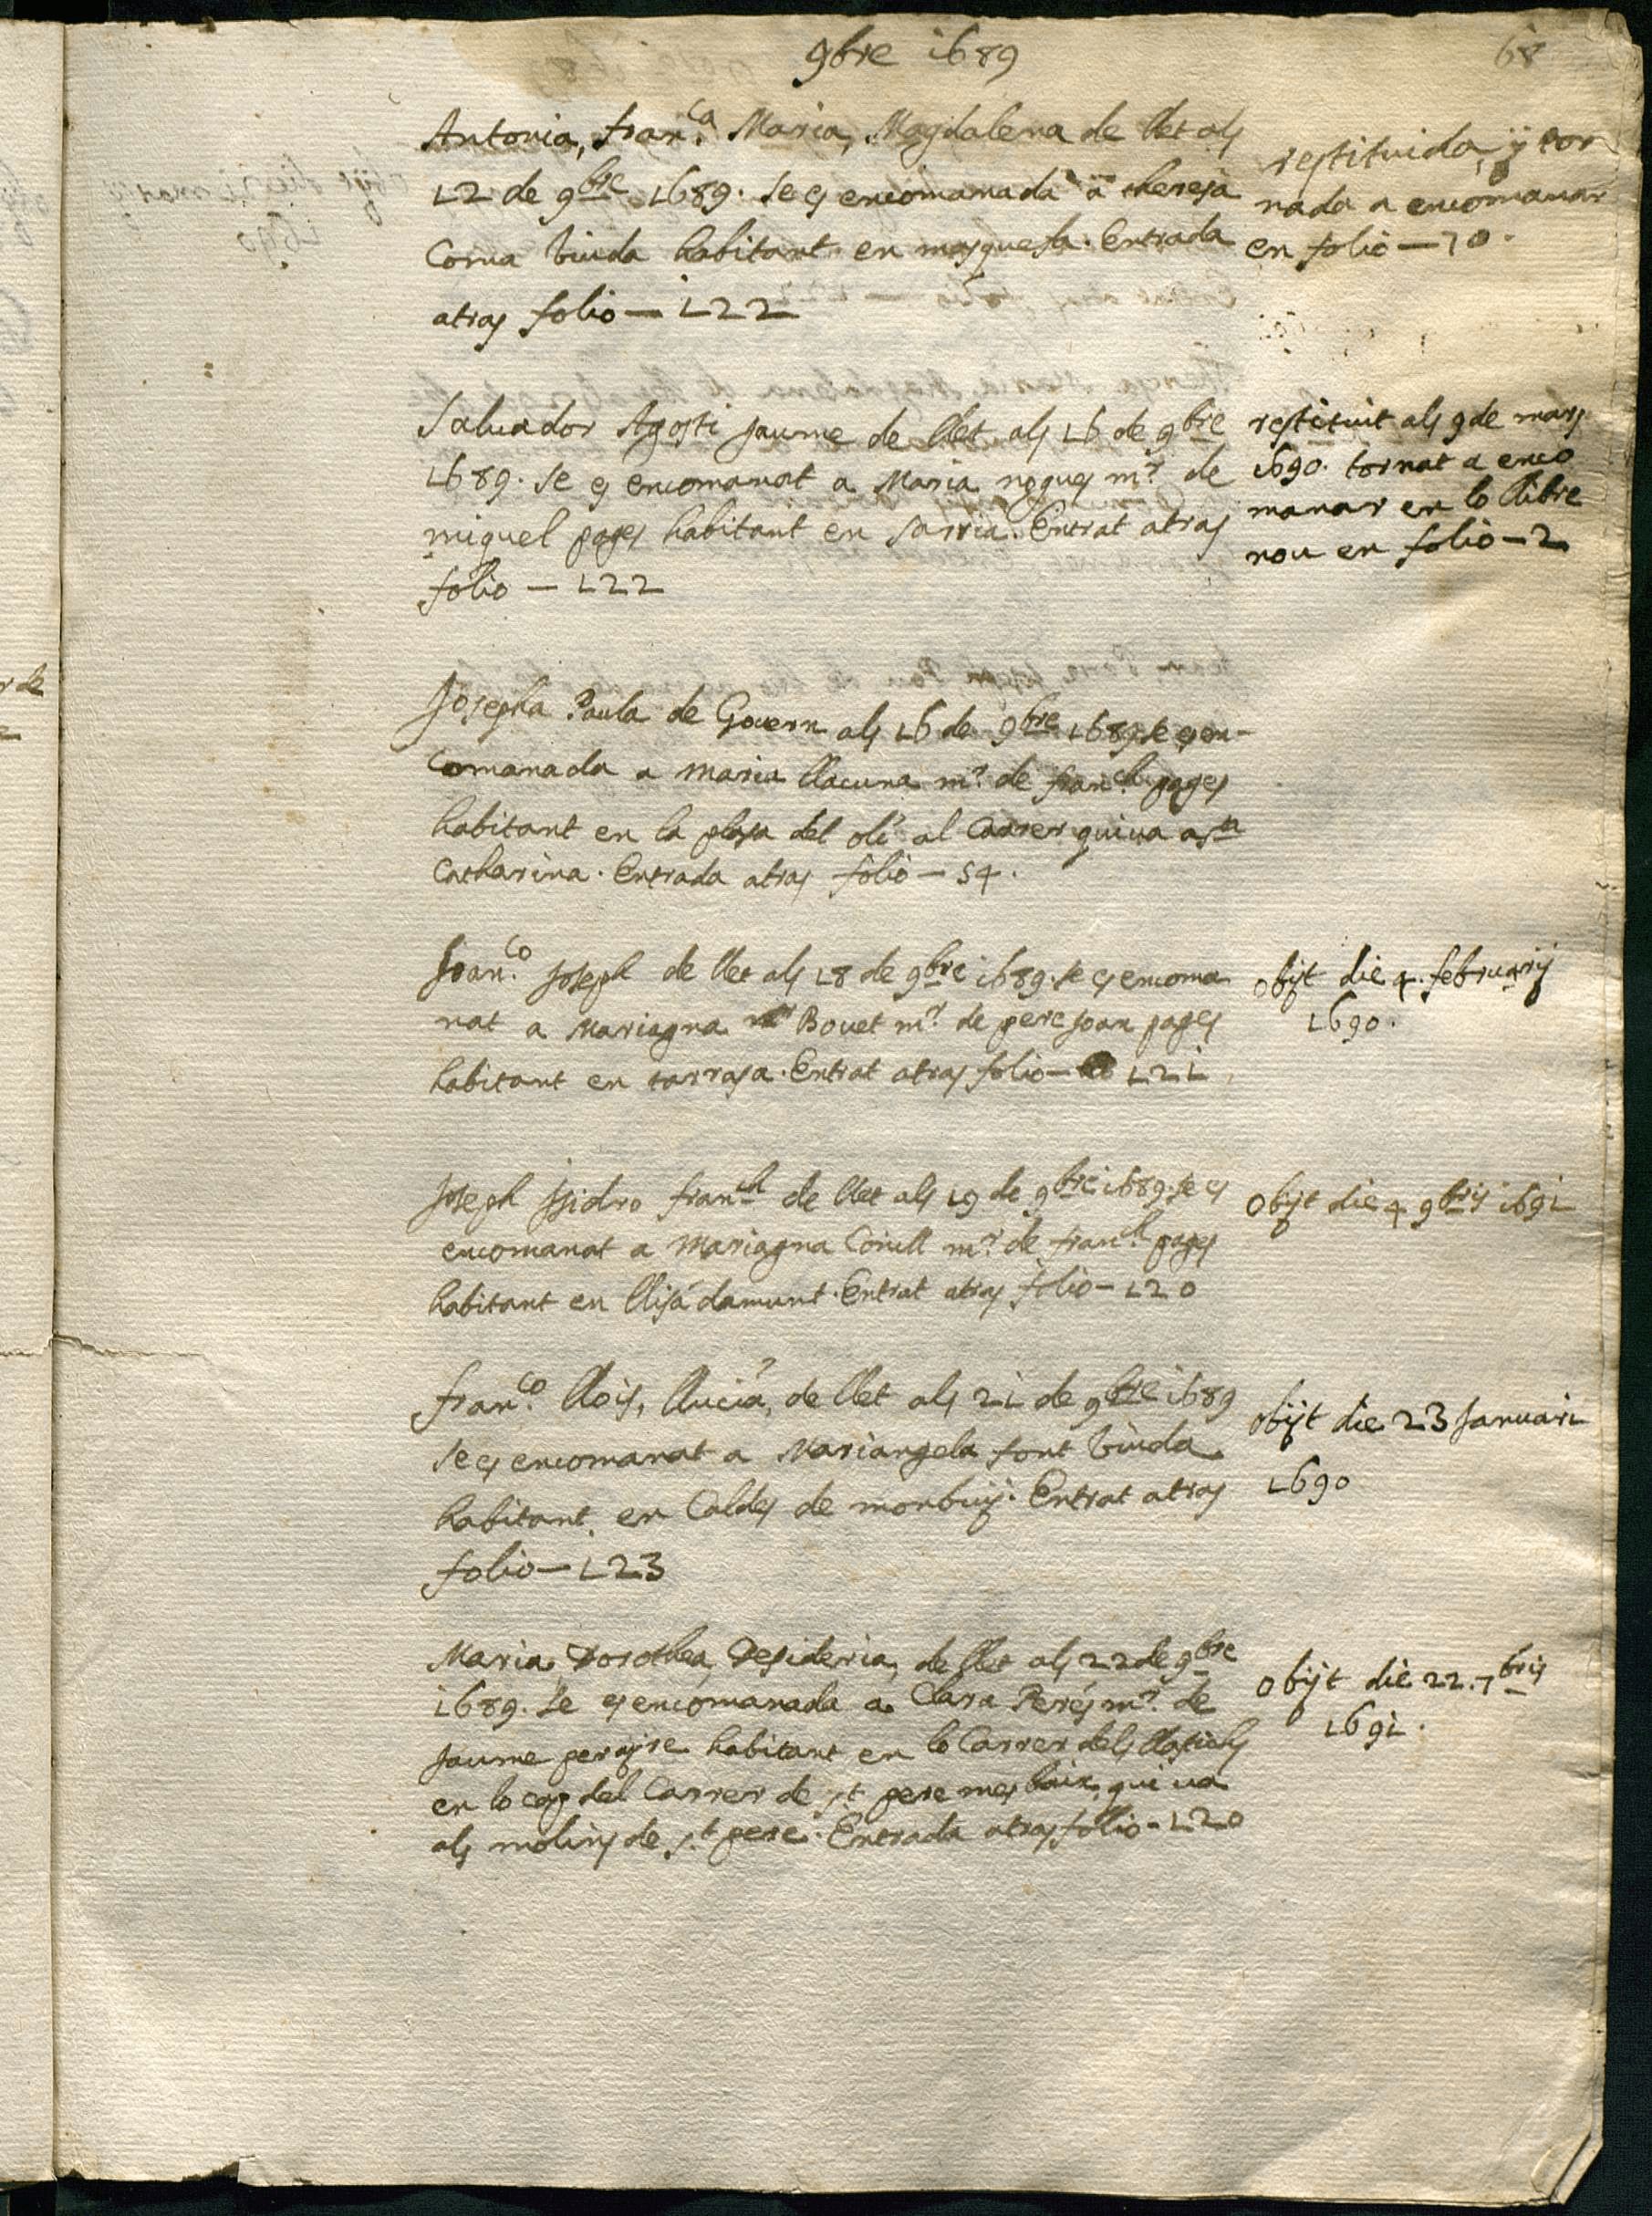 9bre 1689
68
Antonia, fran.ca Maria, Magdalena de llet als
12 de 9bre 1689. se es encomanada a theresa
Coma viuda habitant en masquefa. Entrada
atras folio — 122
restituida, ÿ tor
nada a encomanar
en folio — 70.
Saluador Agosti Jaume de llet als 16 de 9bre
1689. se es encomanat a Maria nogues mr. de
miquel pages habitant en Sarria. Entrat atras
folio — 122
restituit als 9 de mars
1690. tornat a enco
manar en lo llibre
nou en folio — 2
Josepha Paula de Govern als 16 de 9bre 1689. se es en-
comanada a maria llacuna mr. de fran.ch pages
habitant en la plasa del oli al Carrer qui ua a sta
Catharina. Entrada atras folio — 54.
fran.co Joseph de llet als 18 de 9bre 1689. se es encoma
nat a Mariagna Bouet mr. de pere Joan pages
habitant en tarrasa. Entrat atras folio — 121
obijt die 4. februarij
1690.
Joseph Isidro fran.ch de llet als 19 de 9bre 1689. se es
encomanat a Mariagna Corull mr. de fran.ch pages
habitant en llisá damunt. Entrat atras folio — 120
Obijt die 4 9bris 1691
fran.co llois, lluciá, de llet als 21 de 9bre 1689
se es encomanat a Mariangela font viuda
habitant en Caldes de monbuÿ. Entrat atras
folio — 123
obijt die 23 Januari
1690
Maria, Dorothea, Desideria, de llet als 22 de 9bre
1689. se es encomanada a Clara Perés mr. de
Jaume perayre habitant en lo Carrer dels llastichs
en lo cap del Carrer de st. pere mes baix, qui ua
als molins de st. pere. Entrada atras folio - 120
Obijt die 22. 7bris
1691.